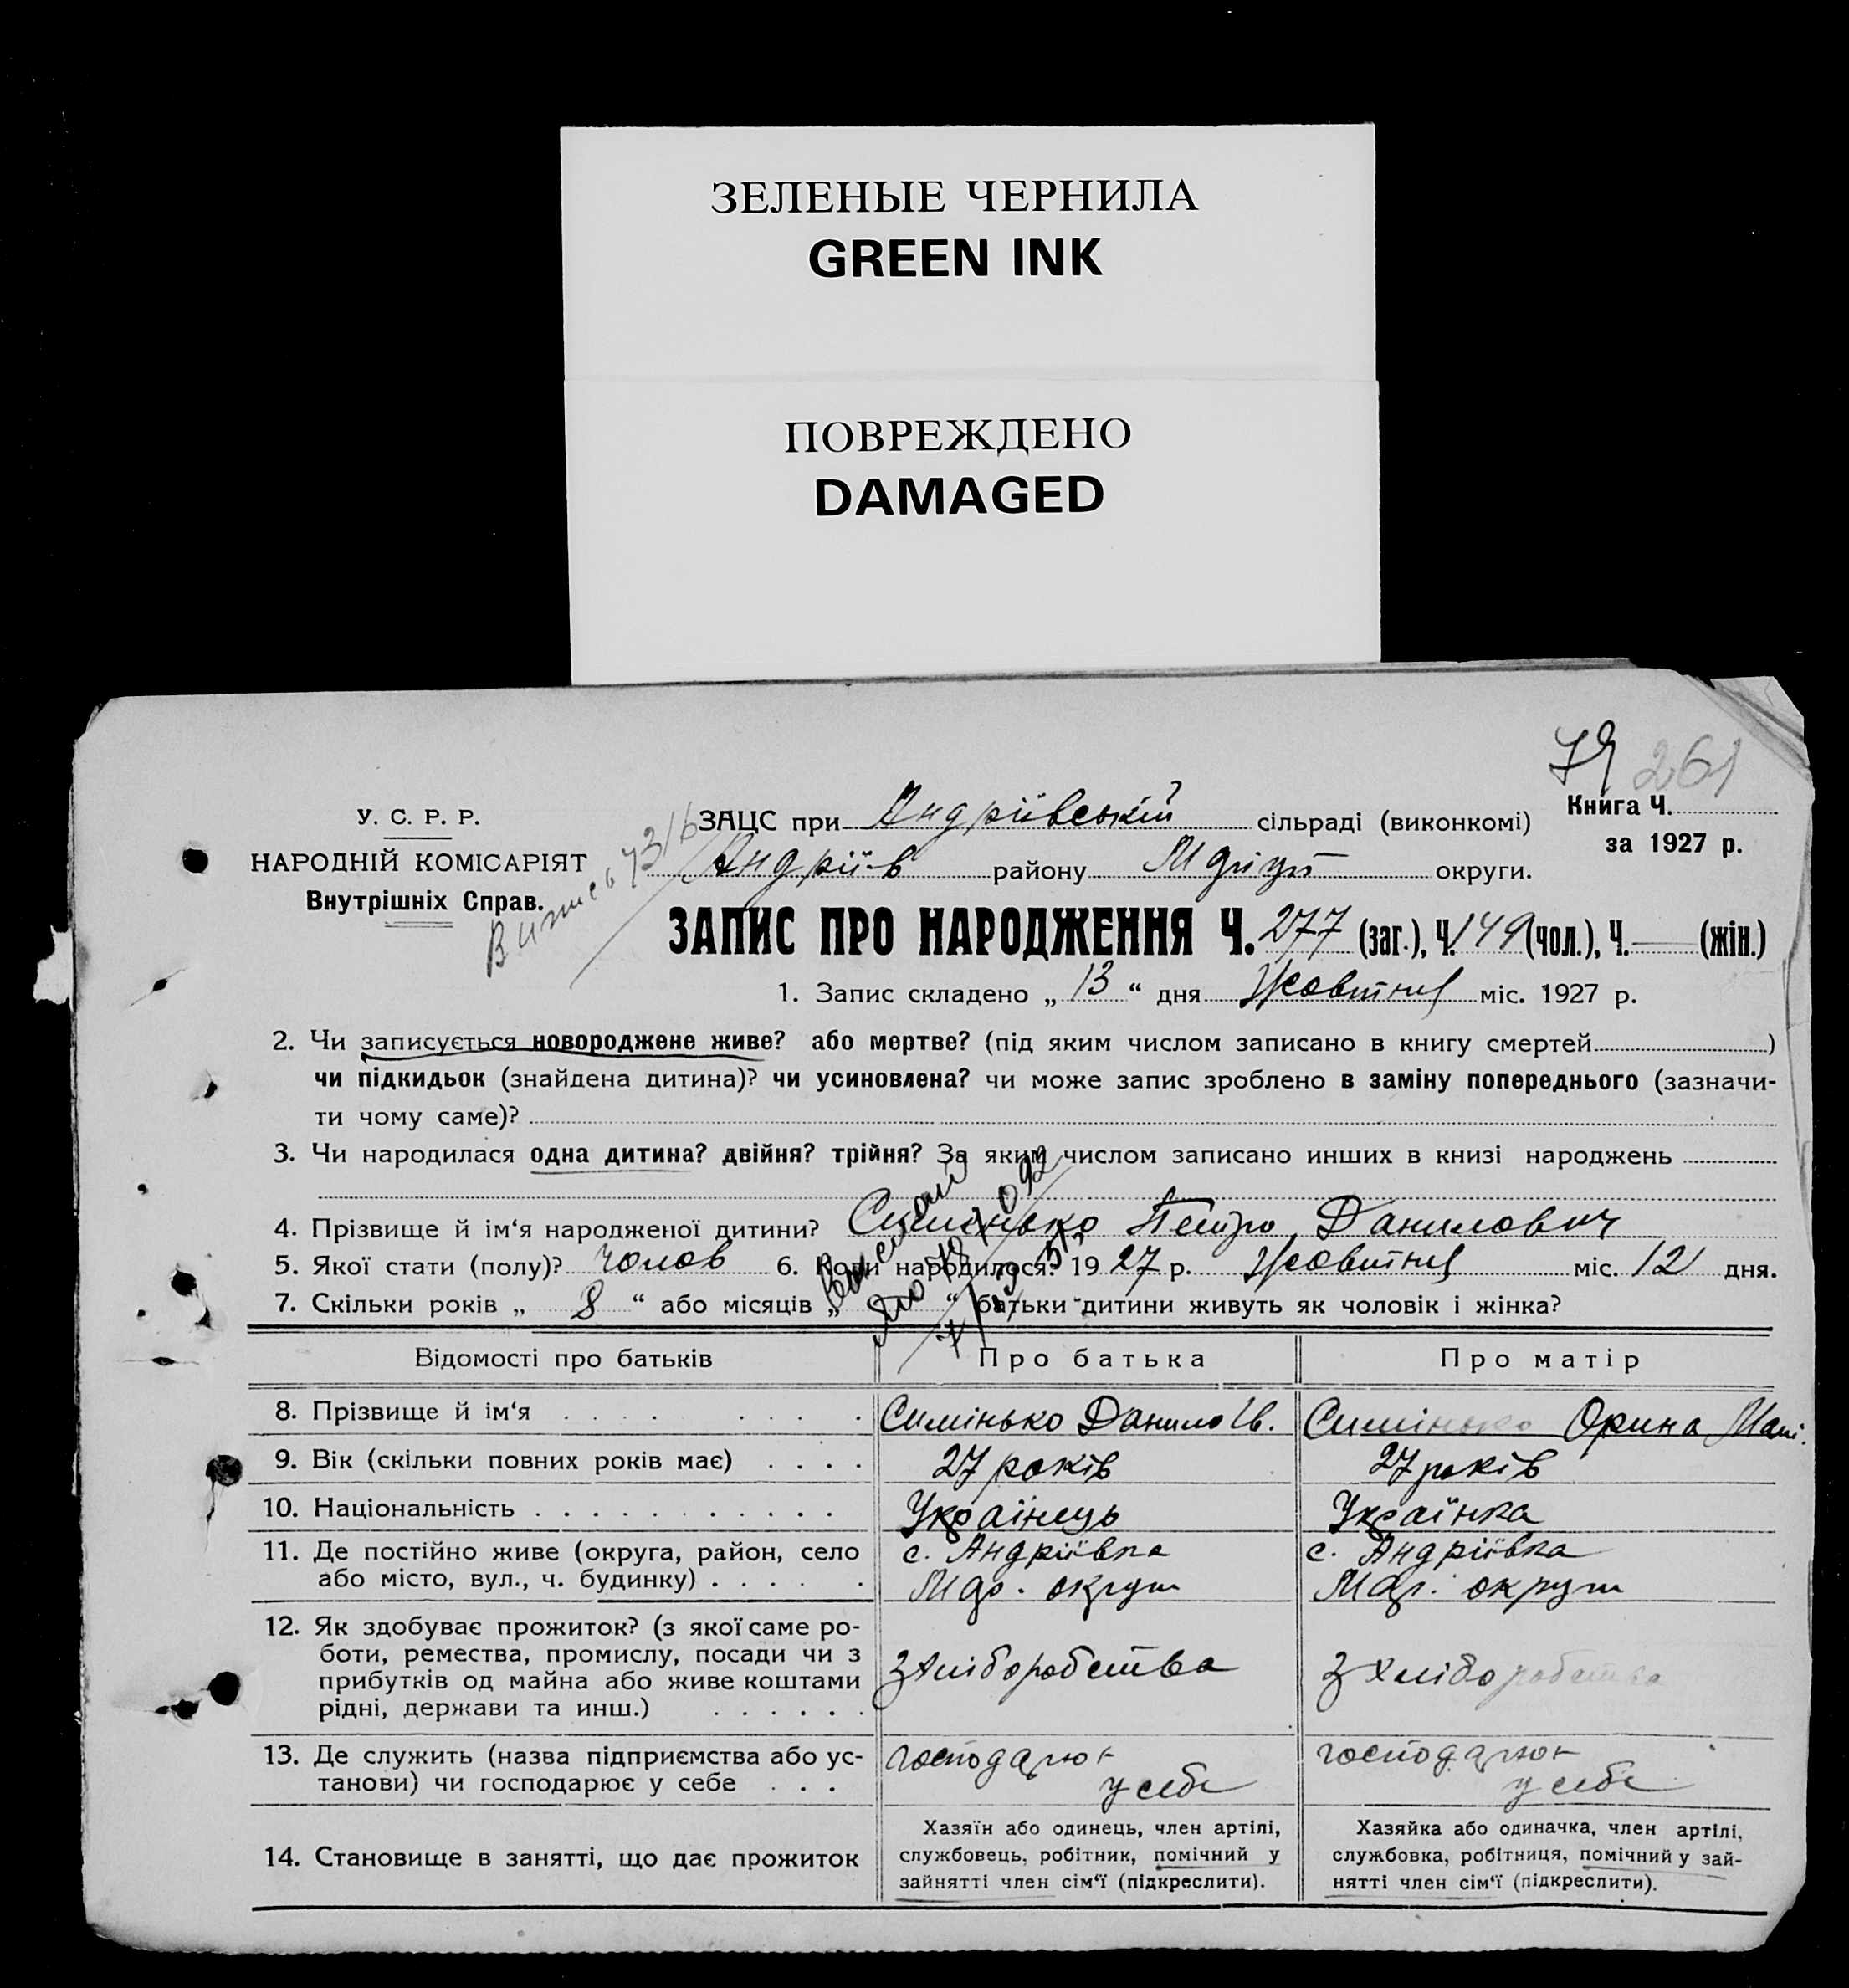 ЗЕЛЕНЫЕ ЧЕРНИЛА
GREEN INK
ПОВРЕЖДЕНО
DAMAGED
261
У. С. Р. Р.
НАРОДНІЙ КОМІСАРІЯТ
Внутрішніх Справ.
Випись
ЗАЦС при Андріївській сільраді (виконкомі)
Книга Ч.
за 1927 р.
Андріїв району округи.
ЗАПИС ПРО НАРОДЖЕННЯ Ч. 277 (заг.), Ч. 149 (чол.), Ч. — (жін.)
1. Запис складено „ 13 “ дня Жовтня міс. 1927 р.
2. Чи записується новороджене живе? або мертве? (під яким числом записано в книгу смертей )
чи підкидьок (знайдена дитина)? чи усиновлена? чи може запис зроблено в заміну попереднього (зазначи-
ти чому саме)?
3. Чи народилася одна дитина? двійня? трійня? За яким числом записано инших в книзі народжень
4. Прізвище й ім‘я народженої дитини? Симінько Петро Данилович
5. Якої стати (полу)? чолов 6. Коли народилося? 19 27 р. Жовтня міс. 12 дня.
7. Скільки років „ 8 “ або місяців „ “ батьки дитини живуть як чоловік і жінка?
Відомості про батьків Про батька Про матір
8. Прізвище й ім‘я Симінько Данило Ів. Симінько Орина Мат.
9. Вік (скільки повних років має) 27 років 27 років
10. Національність Українець Українка
11. Де постійно живе (округа, район, село с. Андріївка с. Андріївка
або місто, вул., ч. будинку) Мар. округи Мар. округи
12. Як здобуває прожиток? (з якої саме ро-
боти, ремества, промислу, посади чи з
прибутків од майна або живе коштами
рідні, держави та инш.)
з хліборобства з хліборобства
13. Де служить (назва підприємства або ус- господарює господарює
танови) чи господарює у себе у себе у себе
14. Становище в занятті, що дає прожиток
Хазяїн або одинець, член артілі,
службовець, робітник, помічний у
зайнятті член сім‘ї (підкреслити).
Хазяйка або одиначка, член артілі,
службовка, робітниця, помічний у зай-
нятті член сім‘ї (підкреслити).